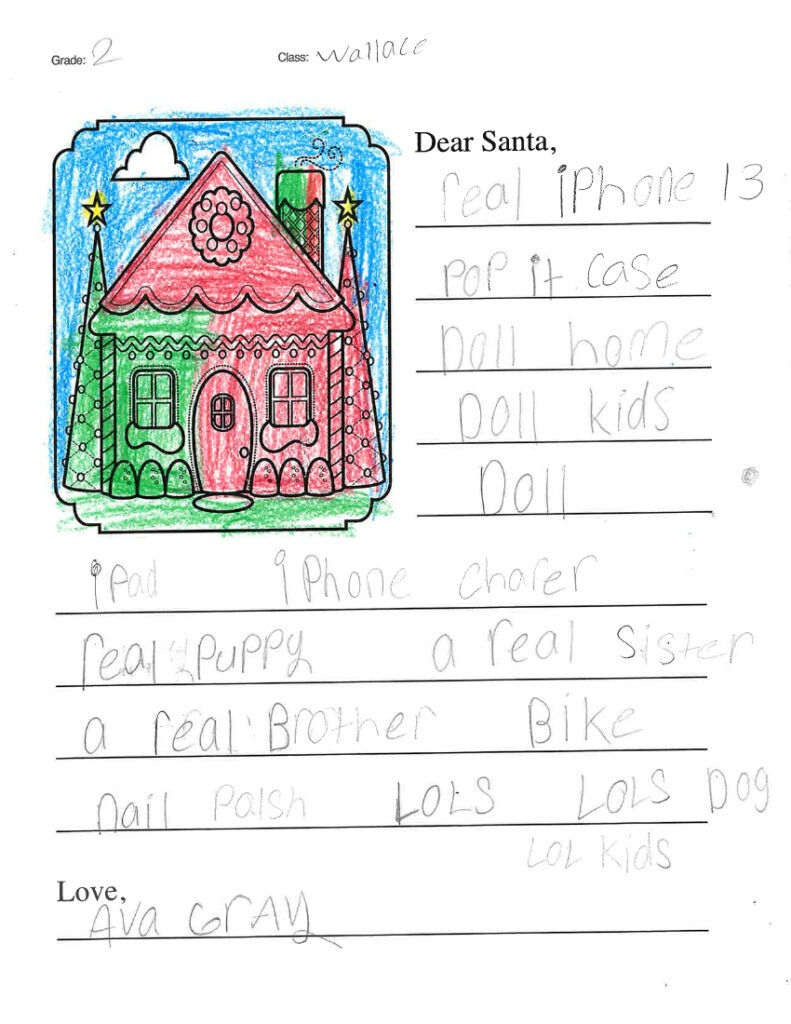 Grade: 2 Class: Wallace
Dear Santa,
real iPhone 13
pop it case
Doll home
Doll kids
Doll
iPad iPhone charer
real puppy a real sister
a real Brother Bike
nail palsh LOLS LOLS Dog
LOL kids
Love,
Ava GrAy